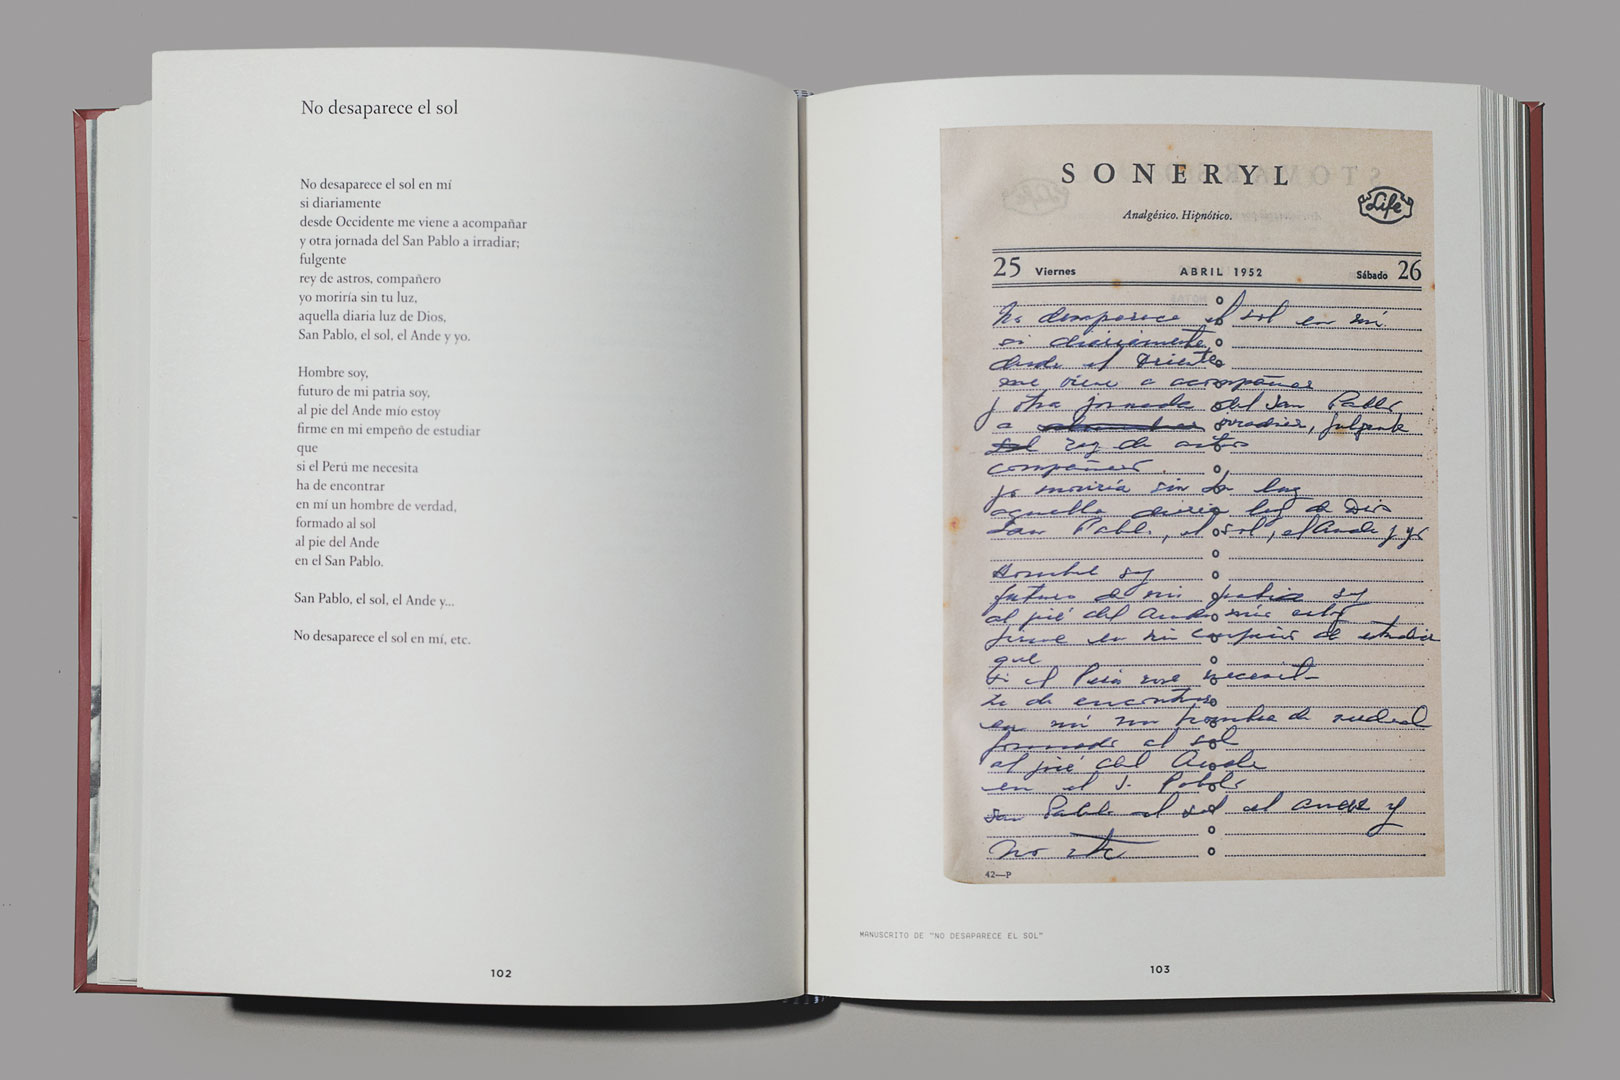 No desaparece el sol
No desaparece el sol en mí
si diariamente
desde Occidente me viene a acompañar
y otra jornada del San Pablo a irradiar;
fulgente
rey de astros, compañero
yo moriría sin tu luz,
aquella diaria luz de Dios,
San Pablo, el sol, el Ande y yo.
Hombre soy,
futuro de mi patria soy,
al pie del Ande mío estoy
firme en mi empeño de estudiar
que
si el Perú me necesita
ha de encontrar
en mí un hombre de verdad,
formado al sol
al pie del Ande
en el San Pablo.
San Pablo, el sol, el Ande y...
No desaparece el sol en mí, etc.
102
SONERYL
Analgésico. Hipnótico.
Life
25 Viernes ABRIL 1952 Sábado 26
No desaparece el sol en mí
si diariamente
desde el Oriente
me viene a acompañar
y otra jornada del San Pablo
a irradiar, fulgente
rey de astros
compañero
yo moriría sin tu luz
aquella diaria luz de Dios
San Pablo, el sol, el Ande y yo
Hombre soy
futuro de mi patria soy
al pié del Ande mío estoy
firme en mi empeño de estudiar
que
si el Perú me necesita
ha de encontrar
en mí un hombre de verdad
formado al sol
al pié del Ande
en el S. Pablo
San Pablo el sol el ande y
No etc
42—P
MANUSCRITO DE "NO DESAPARECE EL SOL"
103